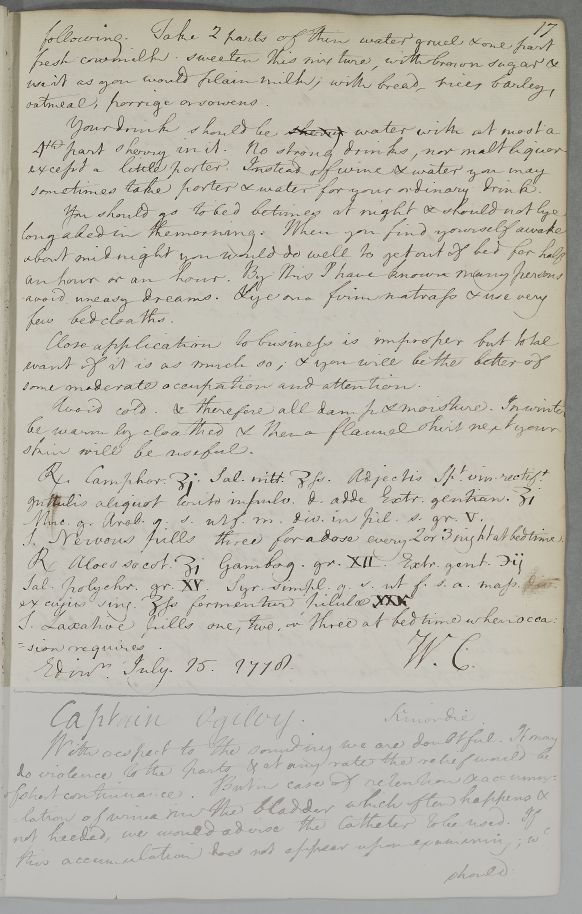 17
following. Take 2 parts of thin water gruel & one part
fresh cowmilk. sweeten this mixture, with brown sugar &
use it as you would plain milk; with bread, rice, barley,
oatmeal, porrige or sowens.
Your drink should be water with at most a
4th part sherry in it. No strong drinks, nor malt liquor
except a little porter. Instead of wine & water you may
sometimes take porter & water for your ordinary drink.
You should go to bed betimes at night & should not lye
long abed in the mornings. When you find yourself awake
about midnight you would do well to get out of bed for half
an hour or an hour. By this I have known many persons
avoid uneasy dreams. Lye on a firm matrass & use very
few bedcloaths.
Close application to business is improper but total
want of it is as much so; & you will be the better of
some moderate occupation and attention.
Avoid cold. & therefore all damp & moisture. In winter
be warmly cloathed & then a flannel shirt next your
skin will be useful.
℞. Camphor. ʒj. Sal. nitr. ʒſs. Adjectis Spt. vin. rectift.
guttulis aliquot tritis in pulv. d. adde Extr. gentian. ʒi
Muc. g. Arab. q. s. ut f. m. div. in pil. s. gr. V.
S. Nervous pills three for a dose every 2 or 3 night at bedtime.
℞ Aloes socot. ʒi Gambog. gr. XII. Extr. gent. ℈ij
Sal. polychr. gr. XV. Syr. simpl. q. s. ut f. s. a. mass.
ex cujus sing. ʒſs formentur pilulæ
S. Laxative pills one, two, or three at bedtime when occa:
=sion requires.
Edinr. July. 15. 1778. W. C.
Captain Ogilvy. Kinordie.
With respect to the sounding we are doubtful. It may
do violence to the parts & at any rate the relief would be
of short continuance. But in case of retention & accumu:
lation of urine in the bladder which often happens &
not heeded, we would advise the catheter to be used. If
this accumulation does not appear upon examining; we
should